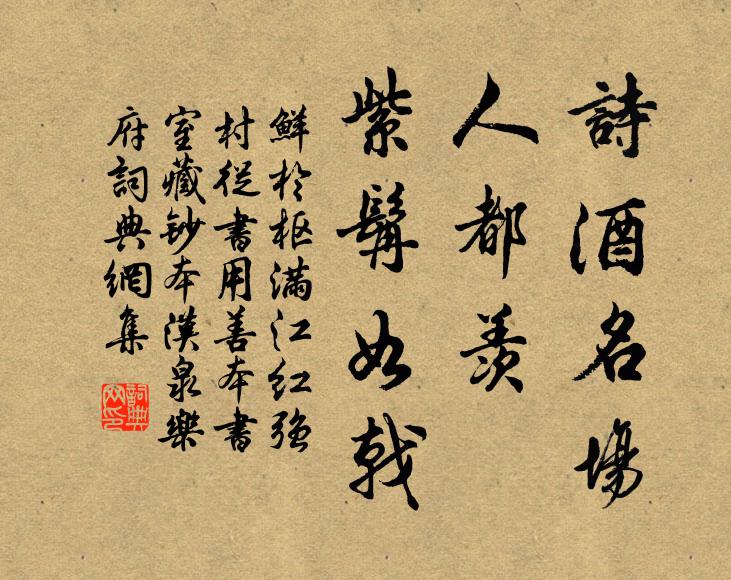 詩酒名場
人都羨
紫髯如戟
鮮於枢滿江紅强
村從書用善本書
室藏鈔本漢泉樂
府詞典網集
詞典
网印